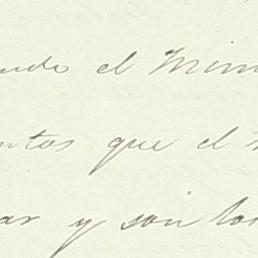 ndo el Mini
ntos que el
ar y son los